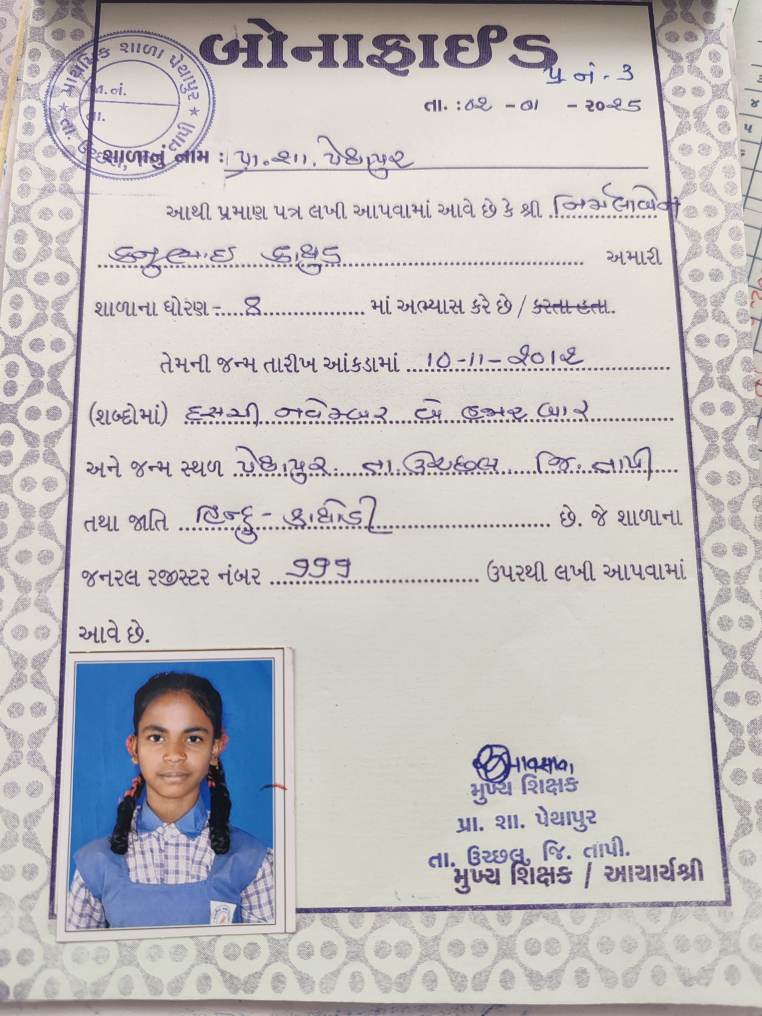 બોનાફાઈડ
પ્રાથમિક શાળા પેથાપુર
જા.નં.
તા.
તા. ઉચ્છલ, જિ. તાપી
પ્ર નં. 3
તા. : ૦૨ - ૦૧ - ૨૦૨૫
શાળાનું નામ : પ્રા. શા. પેથાપુર
આથી પ્રમાણ પત્ર લખી આપવામાં આવે છે કે શ્રી નિર્મલાબેન
કનુભાઇ કાથુડ અમારી
શાળાના ધોરણ :- 8 માં અભ્યાસ કરે છે / કરતા હતા.
તેમની જન્મ તારીખ આંકડામાં 10-11-૨૦1૨
(શબ્દોમાં) દસમી નવેમ્બર બે હજાર બાર
અને જન્મ સ્થળ પેથાપુર તા. ઉચ્છલ જિ. તાપી
તથા જાતિ હિન્દુ - કાથોડી છે. જે શાળાના
જનરલ રજીસ્ટર નંબર ૭૭૧ ઉપરથી લખી આપવામાં
આવે છે.
મુખ્ય શિક્ષક
પ્રા. શા. પેથાપુર
તા. ઉચ્છલ, જિ. તાપી.
મુખ્ય શિક્ષક / આચાર્યશ્રી